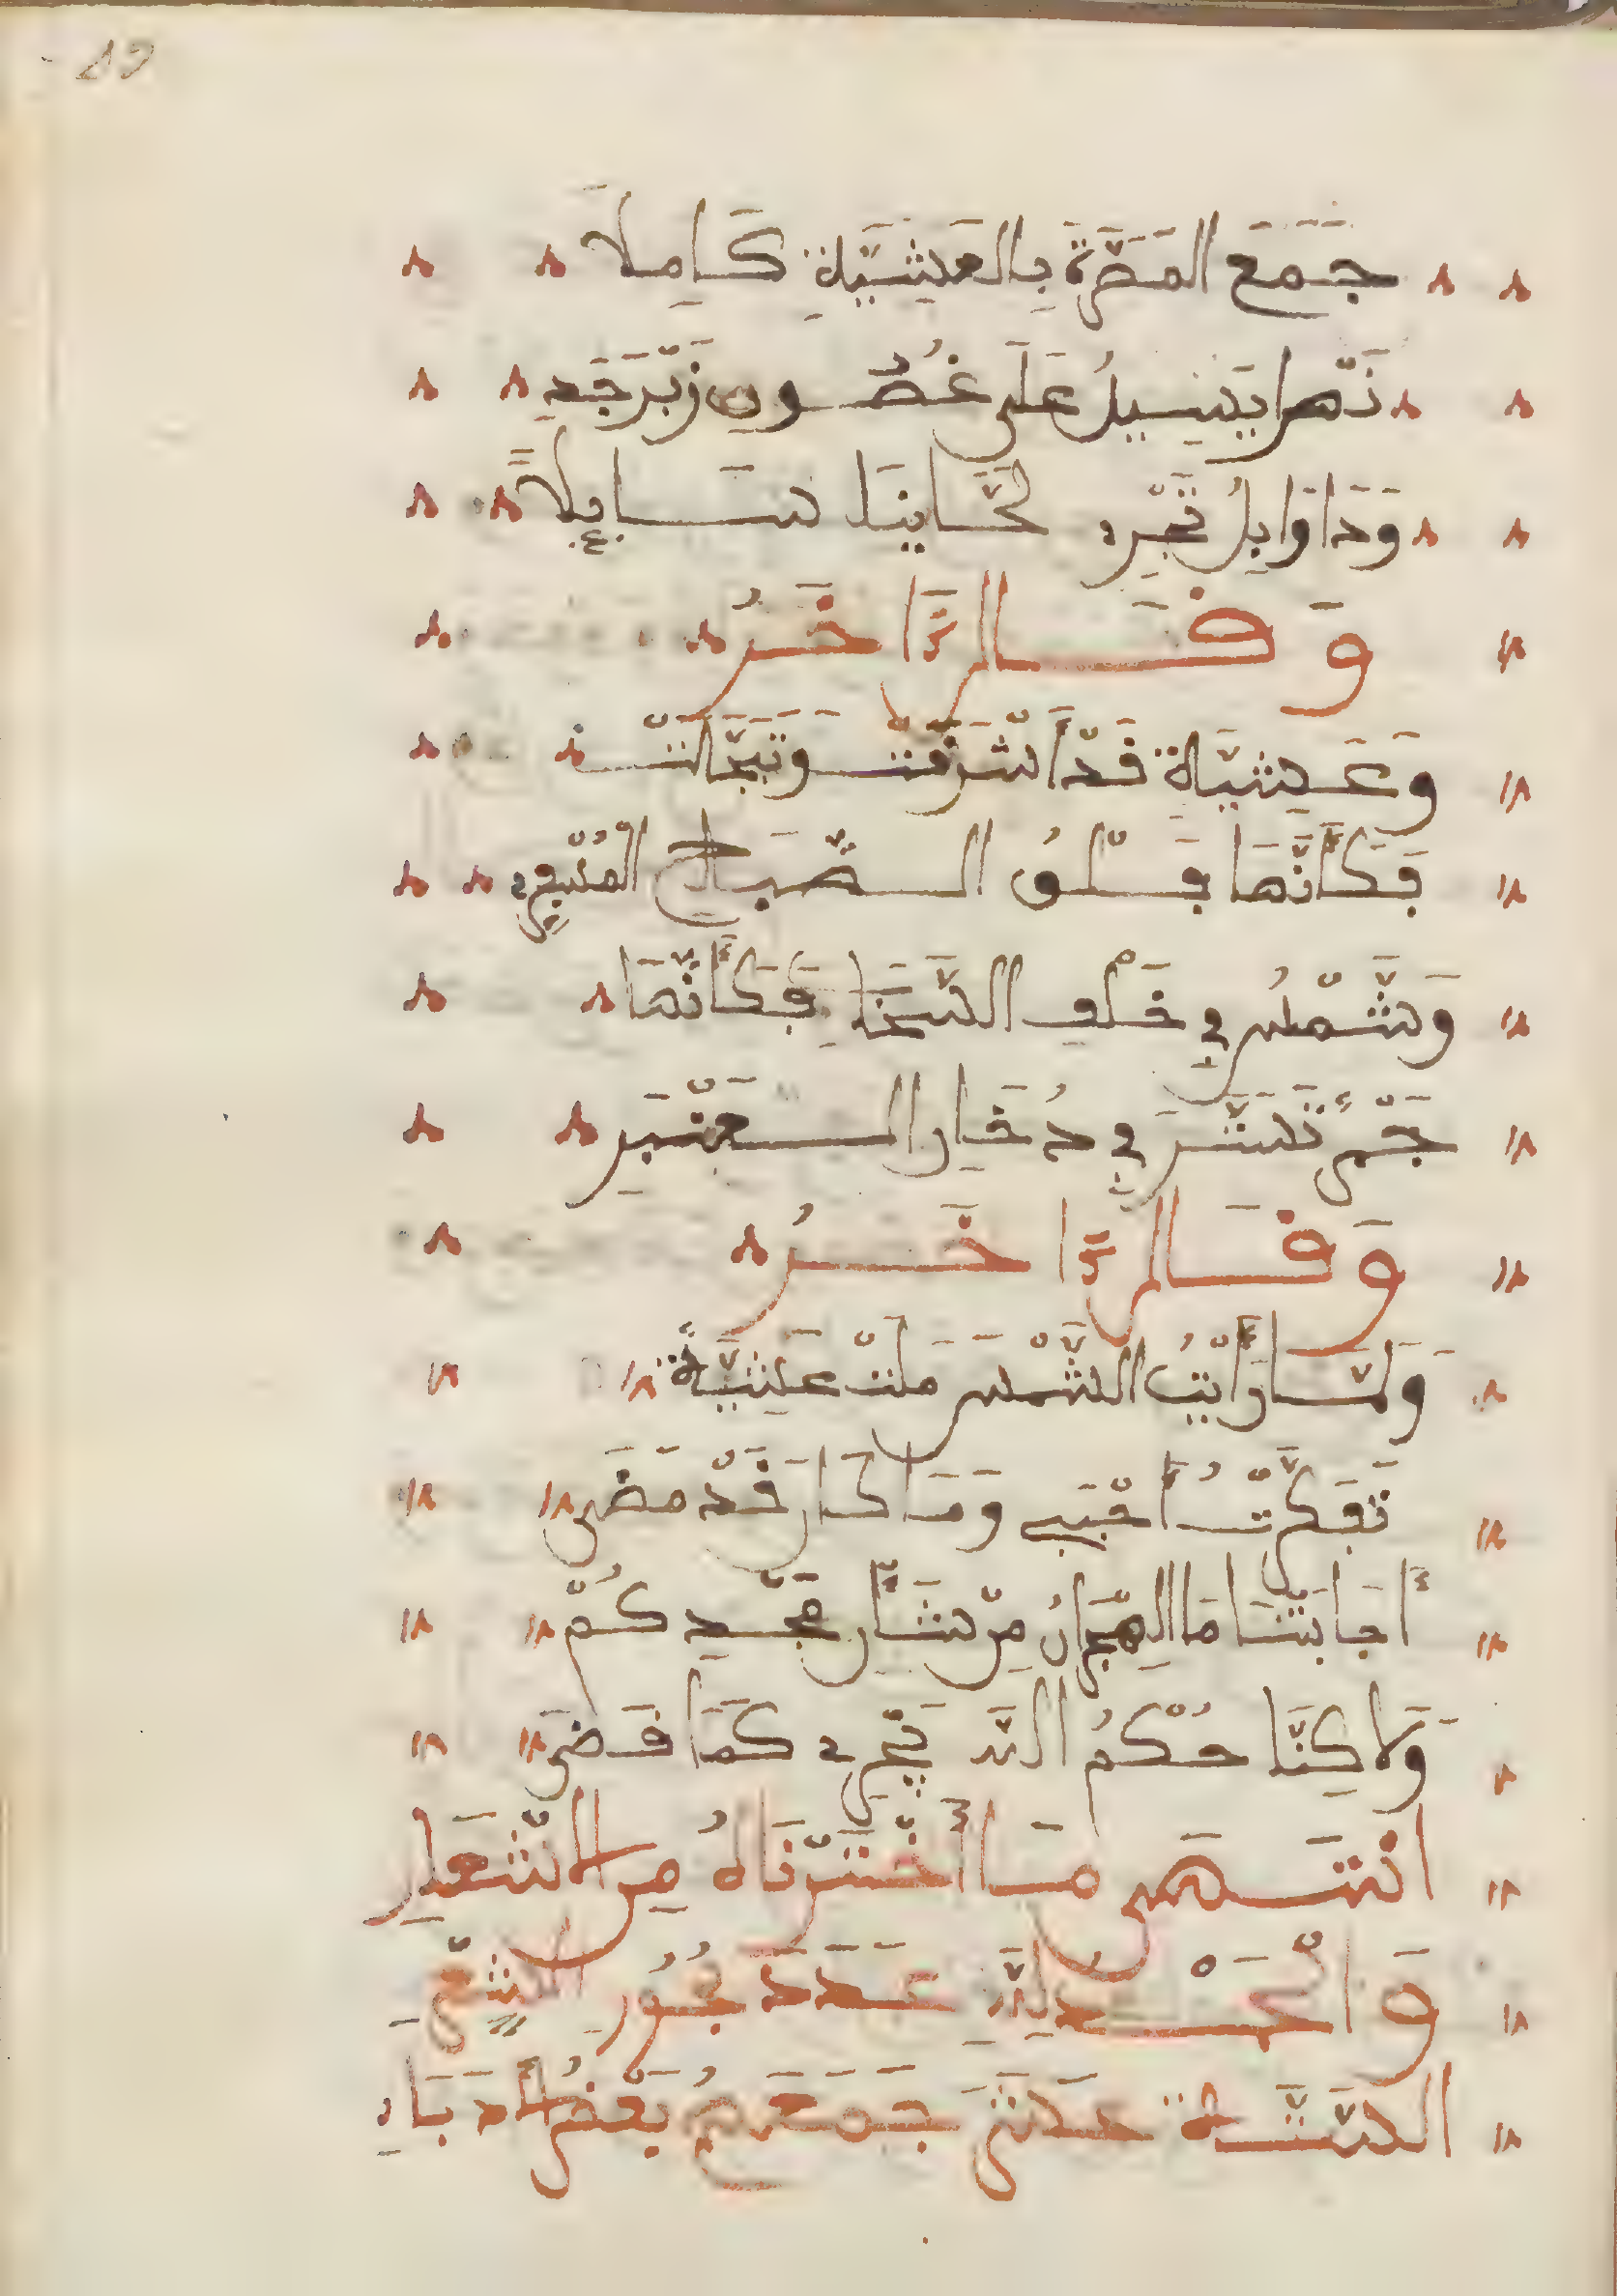 19
جَمَعَ المَضَرَّةَ بِالعَشِيَّةِ كَامِلاَ
نَهْرا يَسِيلُ عَلَى غُصُونِ زَبَرْجَدِ
وَدَا وَابِلُ تَجْرِه لَحَّايِنَا سَايِلاً
وَقَالَ ءَاخَرُ
وَعَشِيَّاة قَدْ أَشْرَقَتْ وَتَجَّلَتْ
فَكَأَنَّهَا فَلْقُ الصَّبَاحِ المُسْفِرِ
وَشَّمْسُ فِي خَلْفِ السَّحَابِ فَكَأَنَّهَا
جَمْرُ تَسَتَّرَ فِي دُخَانِ العَنْبَرِ
وَقَالَ ءَاخَرُ
وَلَمَّا رَأَيْتُ الشَّمْسَ مَلَتْ عَشِيَّةً
تَفَكَّرْتُ أَحْبَبِي وَمَا كَانَ قَدْ مَضَى
أَحَابَتْنَا مَا الهِجْرَانُ مِنْ شَأْنِ عَبْدِكُمْ
وَلَاكِنَّا حُكْمُ اللَّه يَجْرِي كَمَا قَضَى
انْتَهَى مَا أَخْتَرْنَاهُ مِنَ الشْعَارِ
وَالْحَمْدُ لِلَّهِ عَدَدَ بُحُورِ الشِّعْرِ
السَّتَّة عَشَرَ جَمَعَهُ بَعْضُ أُدَبَاءِ